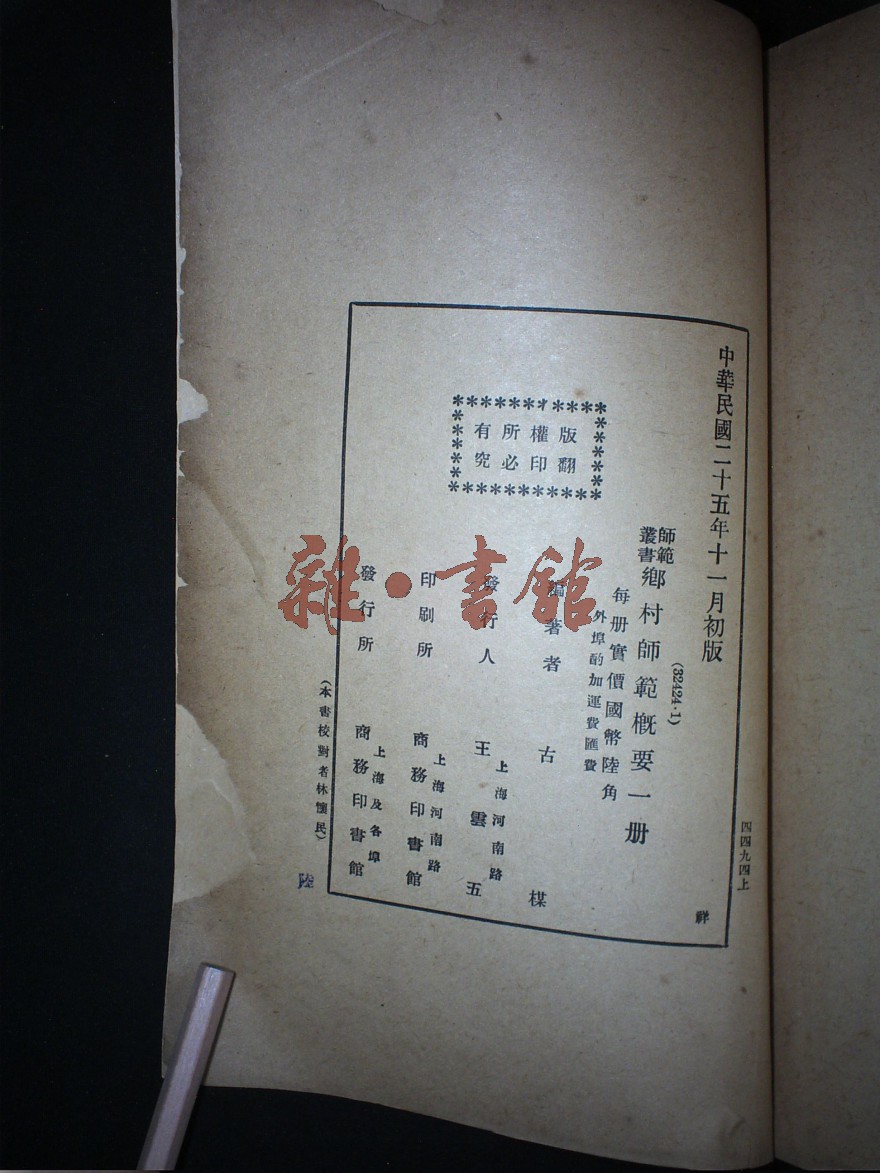 中華民國二十五年十一月初版
四四九四上
(32424·1)
師範
叢書
鄉村師範概要一册
每册實價國幣陸角
外埠酌加運費匯費
祥
版權所有
翻印必究
編著者 古楳
發行人 王雲五
上海河南路
印刷所 商務印書館
上海河南路
發行所 商務印書館
上海及各埠
(本書校對者林 民)
陸
雜·書館